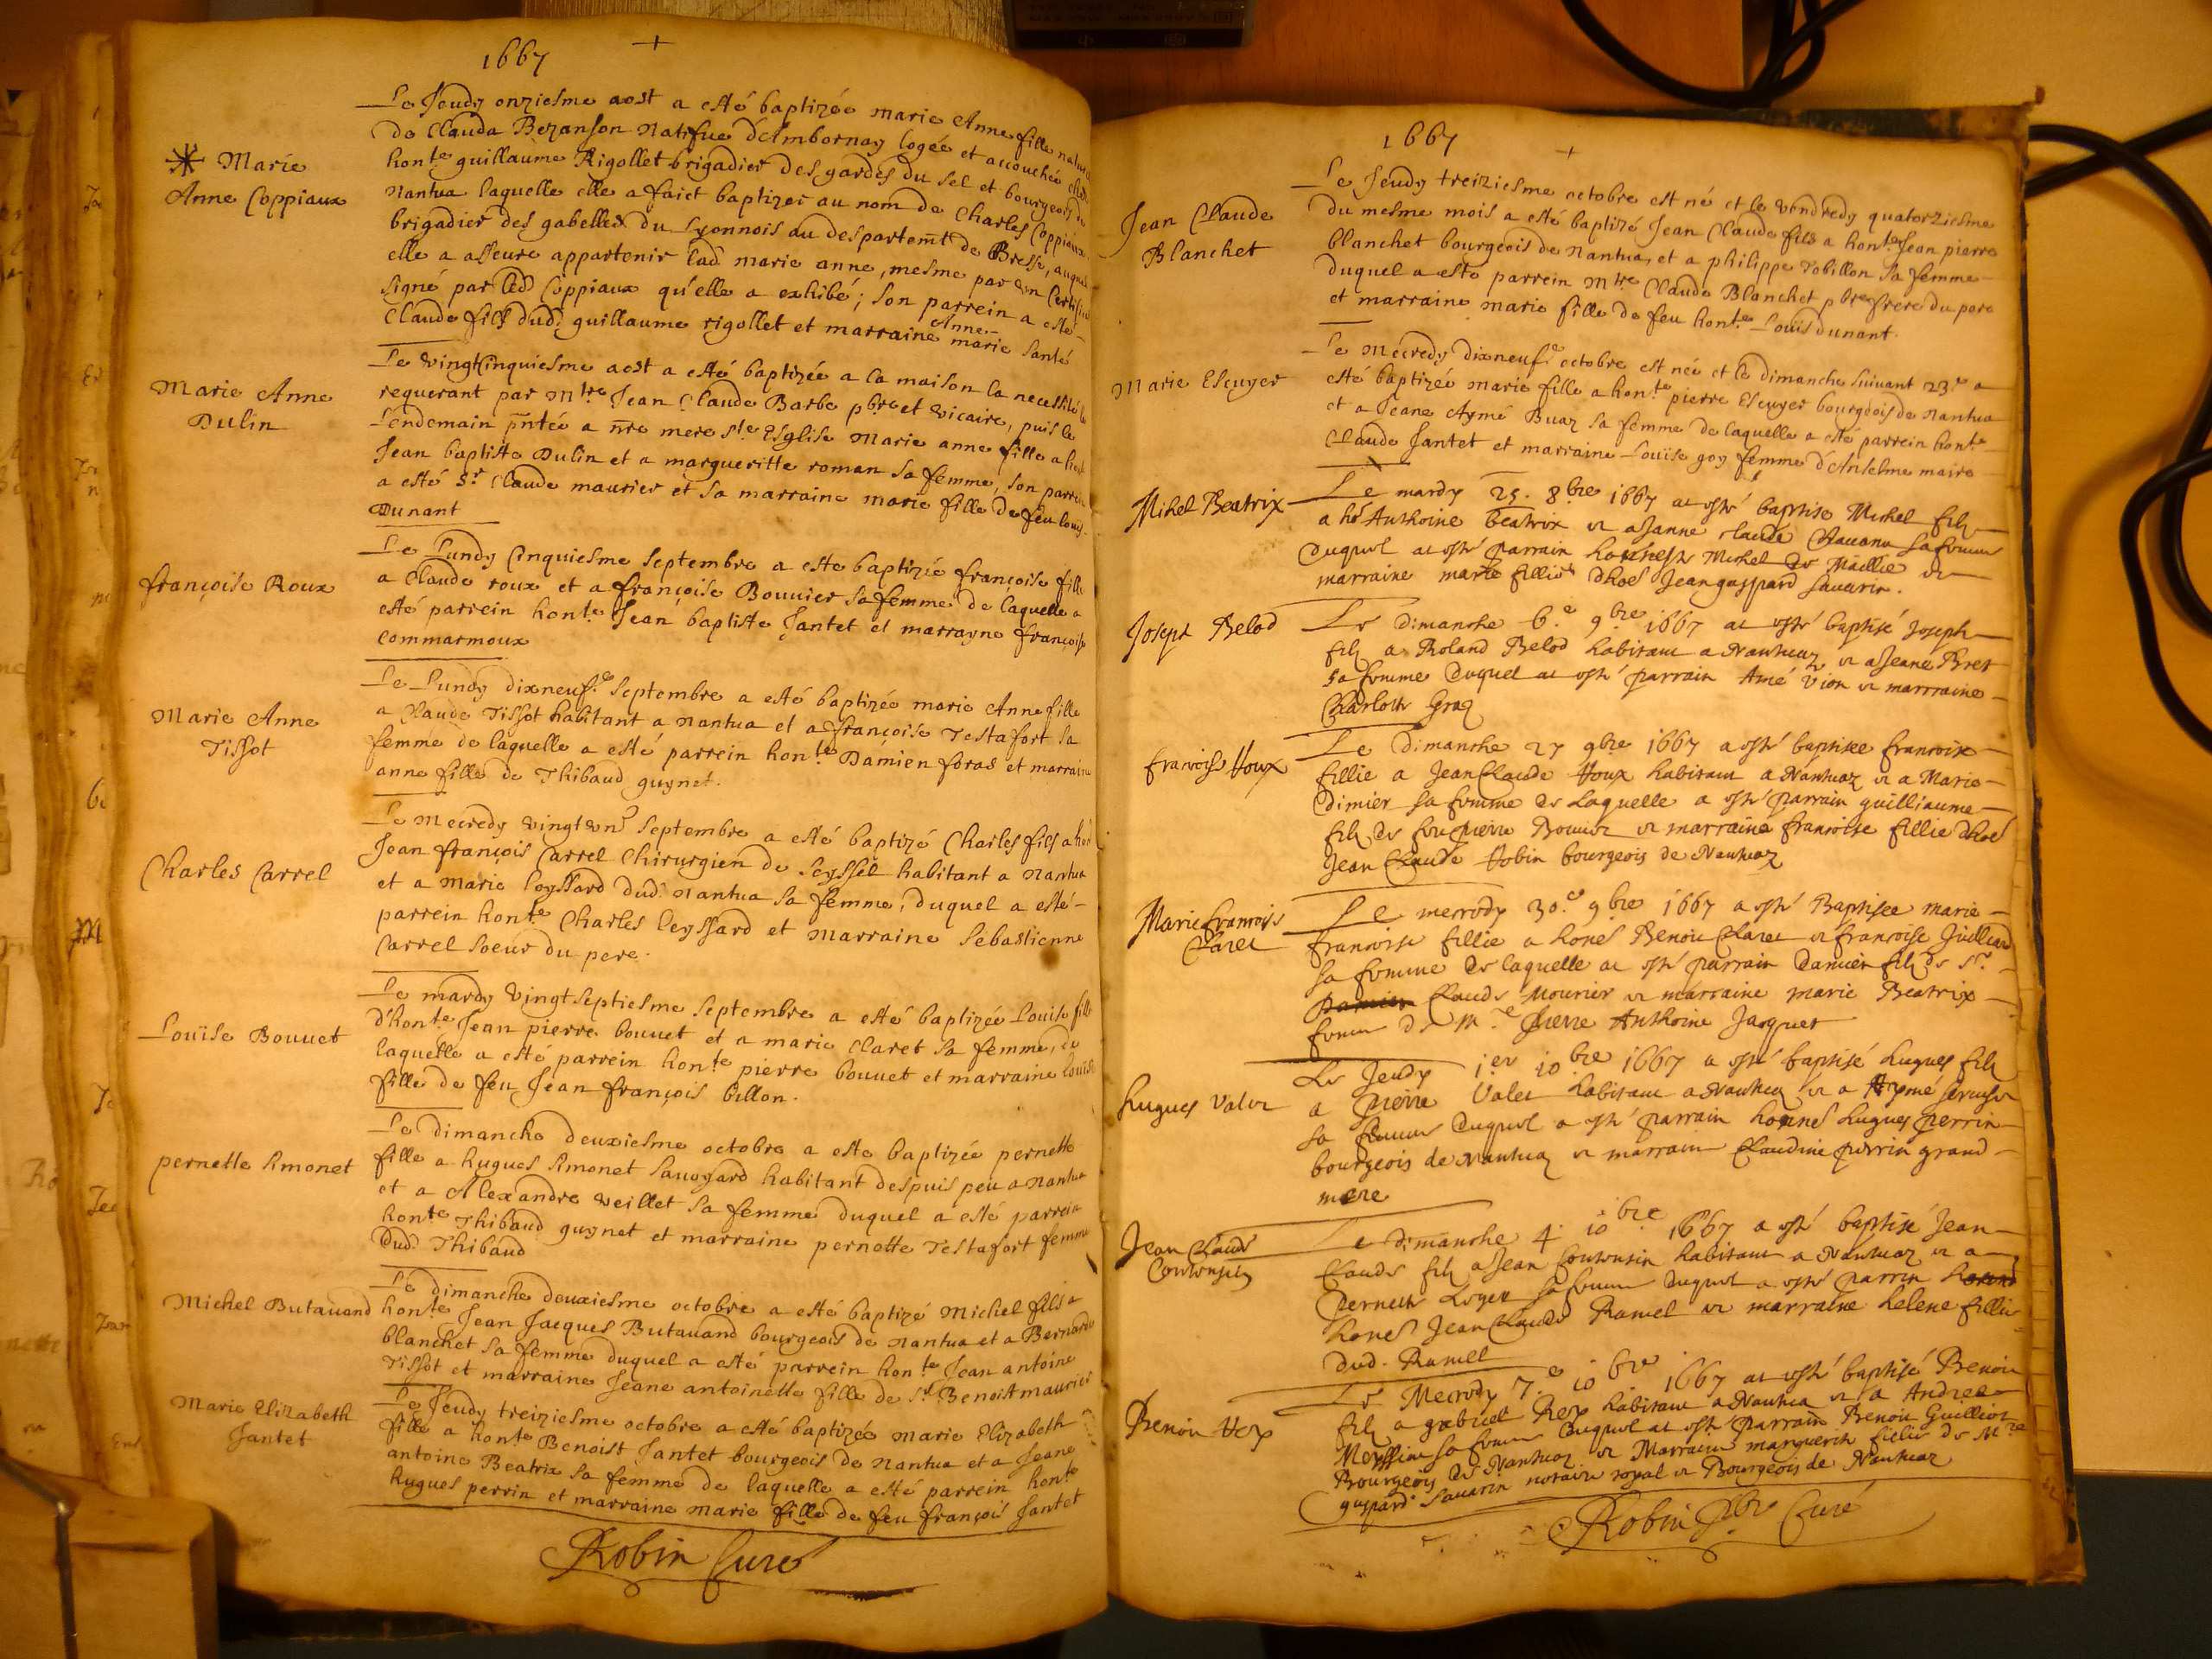 1667
Le Jeudy onziesme aost a esté baptizée marie Anne fille
de Clauda Bezanson natifue d'Ambornay logée et accouchée
✳ Marie
Anne Coppiaux
honte guillaume Rigollet brigadier des gardes du sel et bourgeois
nantua laquelle elle a faict baptizer au nom de Charles Coppiaux
brigadier des gabelles du Lyonnois au despartemt de Bresse,
elle a asseure appartenir lad marie anne, mesme par un
signé par led Coppiaux qu'elle a exhibé; son parrein a esté
Claude fils dud guillaume rigollet et marraine Anne marie santé
Le vingtcinquiesme aost a esté baptizée a la maison la necessité
Marie Anne
Dulin
requerant par Mtre Jean Claude Barbe pbre et vicaire, puis le
Lendemain pntée a nre mere ste Esglise Marie anne fille a
Jean baptiste Dulin et a margueritte roman sa femme, son
a esté Sr Claude maurier et sa marraine marie fille de feu louis
Dunant
Le Lundy Cinquiesme septembre a esté baptizée françoise fille
françoise Roux
a Claude roux et a françoise Bouuier sa femme de laquelle a
esté parrein honte Jean baptiste Jantet et marrayne françoise
Commarmoux
Le Lundy dixneufe septembre a esté baptizée marie Anne fille
Marie Anne
Tissot
a Claude Tissot habitant a nantua et a françoise Testafort sa
femme de laquelle a esté parrein honte Damien foras et marraine
anne fille de Thibaud guynet.
Le Mecredy vingt vn septembre a esté baptizé Charles fils a
Charles Carrel
Jean françois Carrel Chirurgien de Seyssel habitant a nantua
et a marie leyssard dud nantua sa femme, duquel a esté
parrein honte Charles leyssard et Marraine Sébastienne
Carrel soeur du pere.
Le mardy vingt septiesme septembre a esté baptizée Louise fille
Louise Bouuet
d'honte Jean pierre bouuet et a marie Claret sa femme, de
laquelle a esté parrein honte pierre bouuet et marraine louise
fille de feu Jean françois billon.
Le dimanche deuxiesme octobre a esté baptizée pernette
pernette Simonet
fille a hugues Simonet sauoyard habitant despuis peu a nantua
et a Alexandre veillet sa femme duquel a esté parrein
honte Thibaud guynet et marraine pernette Testafort femme
Dud Thibaud
Le dimanche deuxiesme octobre a esté baptizé Michel fils a
Michel Butauand
honte Jean Jacques Butauand bourgeois de nantua et a Bernarde
blanchet sa femme duquel a esté parrein honte Jean antoine
Tissot et marraine Jeane antoinette fille de Sr Benoist maurier
Le Jeudy treiziesme octobre a esté baptizée marie Elizabeth
Marie Elizabeth
Jantet
fille a honte Benoist Jantet bourgeois de nantua et a Jeane
antoine Beatrix sa femme de laquelle a esté parrein honte
hugues perrin et marraine marie fille de feu françois Jantet
Robin Curé
1667
Le Jeudy treiziesme octobre est né et le vendredy quatorziesme
Jean Claude
Blanchet
du mesme mois a esté baptizé Jean Claude fils a honte Jean pierre
blanchet bourgeois de nantua, et a philippe Tobillon sa femme
duquel a esté parrein Mtre Claude Blanchet pbre frere du pere
et marraine marie fille de feu honte Louis dunant.
Le Mecredy dixneufe octobre est née et le dimanche suiuant 23e a
Marie Escuyer
esté baptizée marie fille a honte pierre Escuyer bourgeois de nantua
et a Jeane Aymé Buaz sa femme de laquelle a esté parrein honte
Claude Jantet et marraine Louise goy femme d'Anselme maire
Le mardy 25. 8bre 1667 at esté baptise Michel filz
Mihel Beatrix
a ho Anthoine beatrix et a Janne Claude sa femme
duquel at esté parrain honeste Michel de Maillie et
marraine marie fillie dhoe Jean gaspard sauarin.
Le dimanche 6e 9bre 1667 at esté baptisé Joseph
Joseph Belod
filz a Roland Belod habitant a Nantuaz et a Jeane Bret
sa femme duquel at esté parrain Amé vion et marraine
Charlotte Graz
Le dimanche 27 9bre 1667 a esté baptisee francoise
francoise Roux
fillie a Jean Claude Roux habitant a Nantuaz et a Marie
dimier sa femme de laquelle a esté parrain guilliaume
filz de feu pierre Bouuier et marraine francoise fillie dhoe
Jean Claude Robin bourgeois de Nantuaz
Le mecredy 30e 9bre 1667 a esté Baptisee marie
Marie francoise
Claret
francoise fillie a hones Benoit Claret et francoise Juilliard
sa femme de laquelle at esté parrain damien filz de Sr
Claude Mourier et marraine marie Beatrix
femme de Me pierre Anthoine Jacquet
Le Jeudy 1er 10bre 1667 a esté baptisé hugues filz
hugues Valet
a pierre Valet habitant a Nantua et a Aymé
sa femme duquel a esté parrain hones hugues perrin
bourgeois de Nantuaz et marraine Claudine perrin grand
mere
Le dimanche 4 10bre 1667 a esté baptisé Jean
Jean Claude
Conturier
Claude filz a Jean Conturier habitant a Nantuaz et a
Pernette sa femme duquel a esté parrin
hones Jean Claude Ramel et marraine helene fillie
dud. Ramel
Le Mecredy 7e 10bre 1667 at esté baptisé Benoit
Benoit Rey
filz a gabriel Rey habitant a Nantua et a Andrea
Meyssin sa femme duquel at esté parrain Benoit Guilliot
Bourgeois de Nantuaz et Marraine marguerite fillie de Mtre
gaspard sauarin notaire royal et Bourgeois de Nantuaz
Robin Pbre Curé